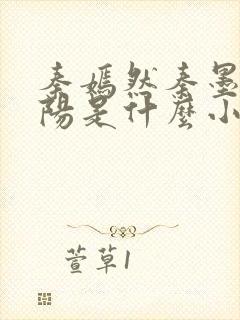 秦嫣然秦墨
陽是什麼小
萱草1